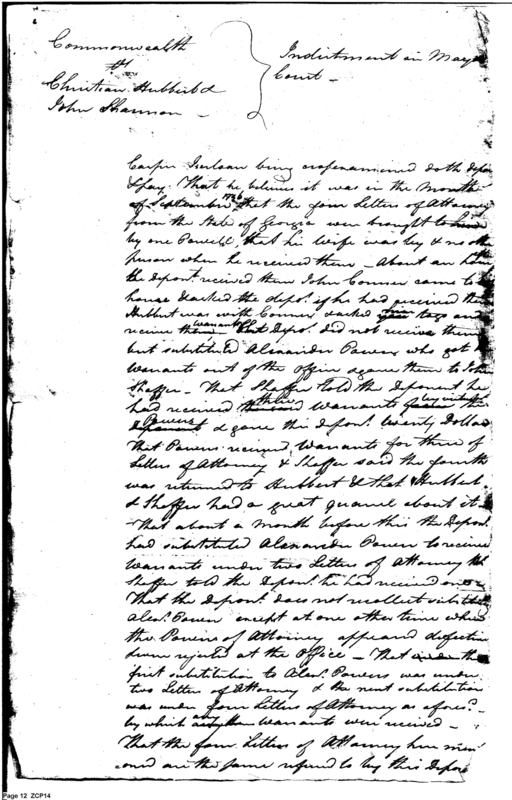 Commonwealth
vs
Christian Hubbirt &
John Shannon —
Indictment in May
Court —
Casper being crossexamined doth depose
& say. That he believes it was in the Month
of September 1786 that the four Letters of Attorney
from the State of Georgia were brought to him
by one Powell, that his Wife was by & no other
person when he received them — About an hour
the Depont. received them John Connor came to
house & asked the depot. if he had received them
Hubbert was with Connor & asked to go and
receive the warrants Depot. did not receive them
but substituted Alexander Powers who got
Warrants out of the office & gave them to John
Shaffer — That Shaffer told the Deponent he
had received three Warrants by virtue of the
Powers & gave this Depont. twenty Dollars
That Powers received Warrants for three of
Letters of Attorney & Shaffer said the fourth
was returned to Hubbert & that Hubbert
& Shaffer had a great quarrel about it —
— That about a Month before this the Depont.
had substituted Alexander Power to receive
Warrants under two Letters of Attorney tht
Shaffer told the Depont. he had received one
That the Depont. does not recollect substituting
Alexr. Power except at one other time when
the Powers of Attorney appeared defective
& were rejected at the Office — That the
first substitution to Alexr. Powers was under
two Letters of Attorney & the next substitution
was under four Letters of Attorney as aforesd. —
by which any Warrants were received —
— That the four Letters of Attorney here men
oned are the same referred to by this Depon
Page 12 ZCP14